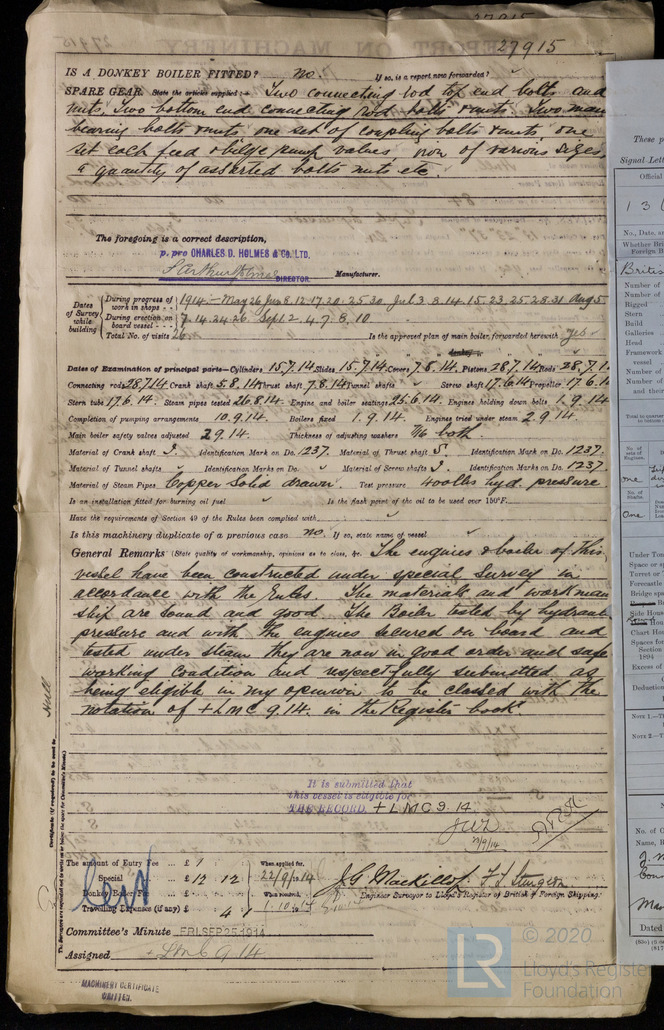 27915
27915
IS A DONKEY BOILER FITTED? no. If so, is a report now forwarded?
SPARE GEAR. State the articles supplied:— Two connecting rod top end bolts and
nuts, Two bottom end connecting rod bolts & nuts. Two main
bearing bolts & nuts, one set of coupling bolts & nuts, one
set each feed & bilge pump valves, iron of various sizes,
& quantity of assorted bolts nuts etc
The foregoing is a correct description,
p. pro CHARLES D. HOLMES & CO. LTD.
DIRECTOR. Manufacturer.
Dates of Survey while building
During progress of work in shops -- 1914:- May 26 Jun 8.12.17.20.25.30 Jul 3.8.14.15.23.25.28.31 Aug 5
During erection on board vessel --- 7.14.24.26. Sept 1.2.4.7.8.10
Total No. of visits 26 Is the approved plan of main boiler forwarded herewith yes
Dates of Examination of principal parts—Cylinders 15.7.14 Slides 15.7.14 Covers 7.8.14. Pistons 28.7.14 Rods 28.7.1
Connecting rods 28.7.14 Crank shaft 5.8.14 Thrust shaft 7.8.14 Tunnel shafts Screw shaft 17.6.14 Propeller 17.6.1
Stern tube 17.6.14. Steam pipes tested 26.8.14 Engine and boiler seatings 25.6.14 Engines holding down bolts 1.9.14
Completion of pumping arrangements 10.9.14. Boilers fixed 1.9.14. Engines tried under steam 2.9.14
Main boiler safety valves adjusted 2.9.14. Thickness of adjusting washers 7/16 both.
Material of Crank shaft Identification Mark on Do. 1237. Material of Thrust shaft S. Identification Mark on Do. 1237.
Material of Tunnel shafts Identification Marks on Do. Material of Screw shafts Identification Marks on Do. 1237.
Material of Steam Pipes Copper Solid drawn. Test pressure 400 lbs hyd. pressure
Is an installation fitted for burning oil fuel Is the flash point of the oil to be used over 150°F.
Have the requirements of Section 49 of the Rules been complied with
Is this machinery duplicate of a previous case no. If so, state name of vessel
General Remarks (State quality of workmanship, opinions as to class, &c. The engines & boiler of this
vessel have been constructed under special Survey in
accordance with the Rules. The materials and workman
ship are sound and good. The Boiler tested by hydraulic
pressure and with the engines secured on board and
tested under steam they are now in good order and safe
working condition and respectfully submitted as
being eligible in my opinion to be classed with the
notation of + LMC 9.14. in the Register book.
Hull
It is submitted that
this vessel is eligible for
THE RECORD. + LMC 9.14
The amount of Entry Fee .. £ 1 When applied for,
Special .. £ 12 12 22/9/14
Donkey Boiler Fee .. £ When received,
Travelling Expenses (if any) £ 4 1 1.10.14
J.G. Mackillop. F.J. Sturgeon
Engineer Surveyor to Lloyd's Register of British & Foreign Shipping.
Committee's Minute FRI.SEP.25.1914
Assigned + LMC 9.14
MACHINERY CERTIFICATE
© 2020
Lloyd's Register
Foundation
LR
These p
Signal Lett
Official
1 3
No., Date, an
Whether Bri
Foreign B
Britis
Number of
Number of
Rigged
Stern
Build
Galleries
Head
Framework
vessel
Number of
Number of
and their
Total to quarte
No. of
sets of
Engines.
one
No. of
Shafts
One
Under Ton
Space or s
Turret or
Forecastle
Bridge spa
Side House
Chart Hou
Spaces for
Section
1894
Excess of
Deduction
NOTE 1.—T
NOTE 2.—T
No. of C
Name, R
Dated